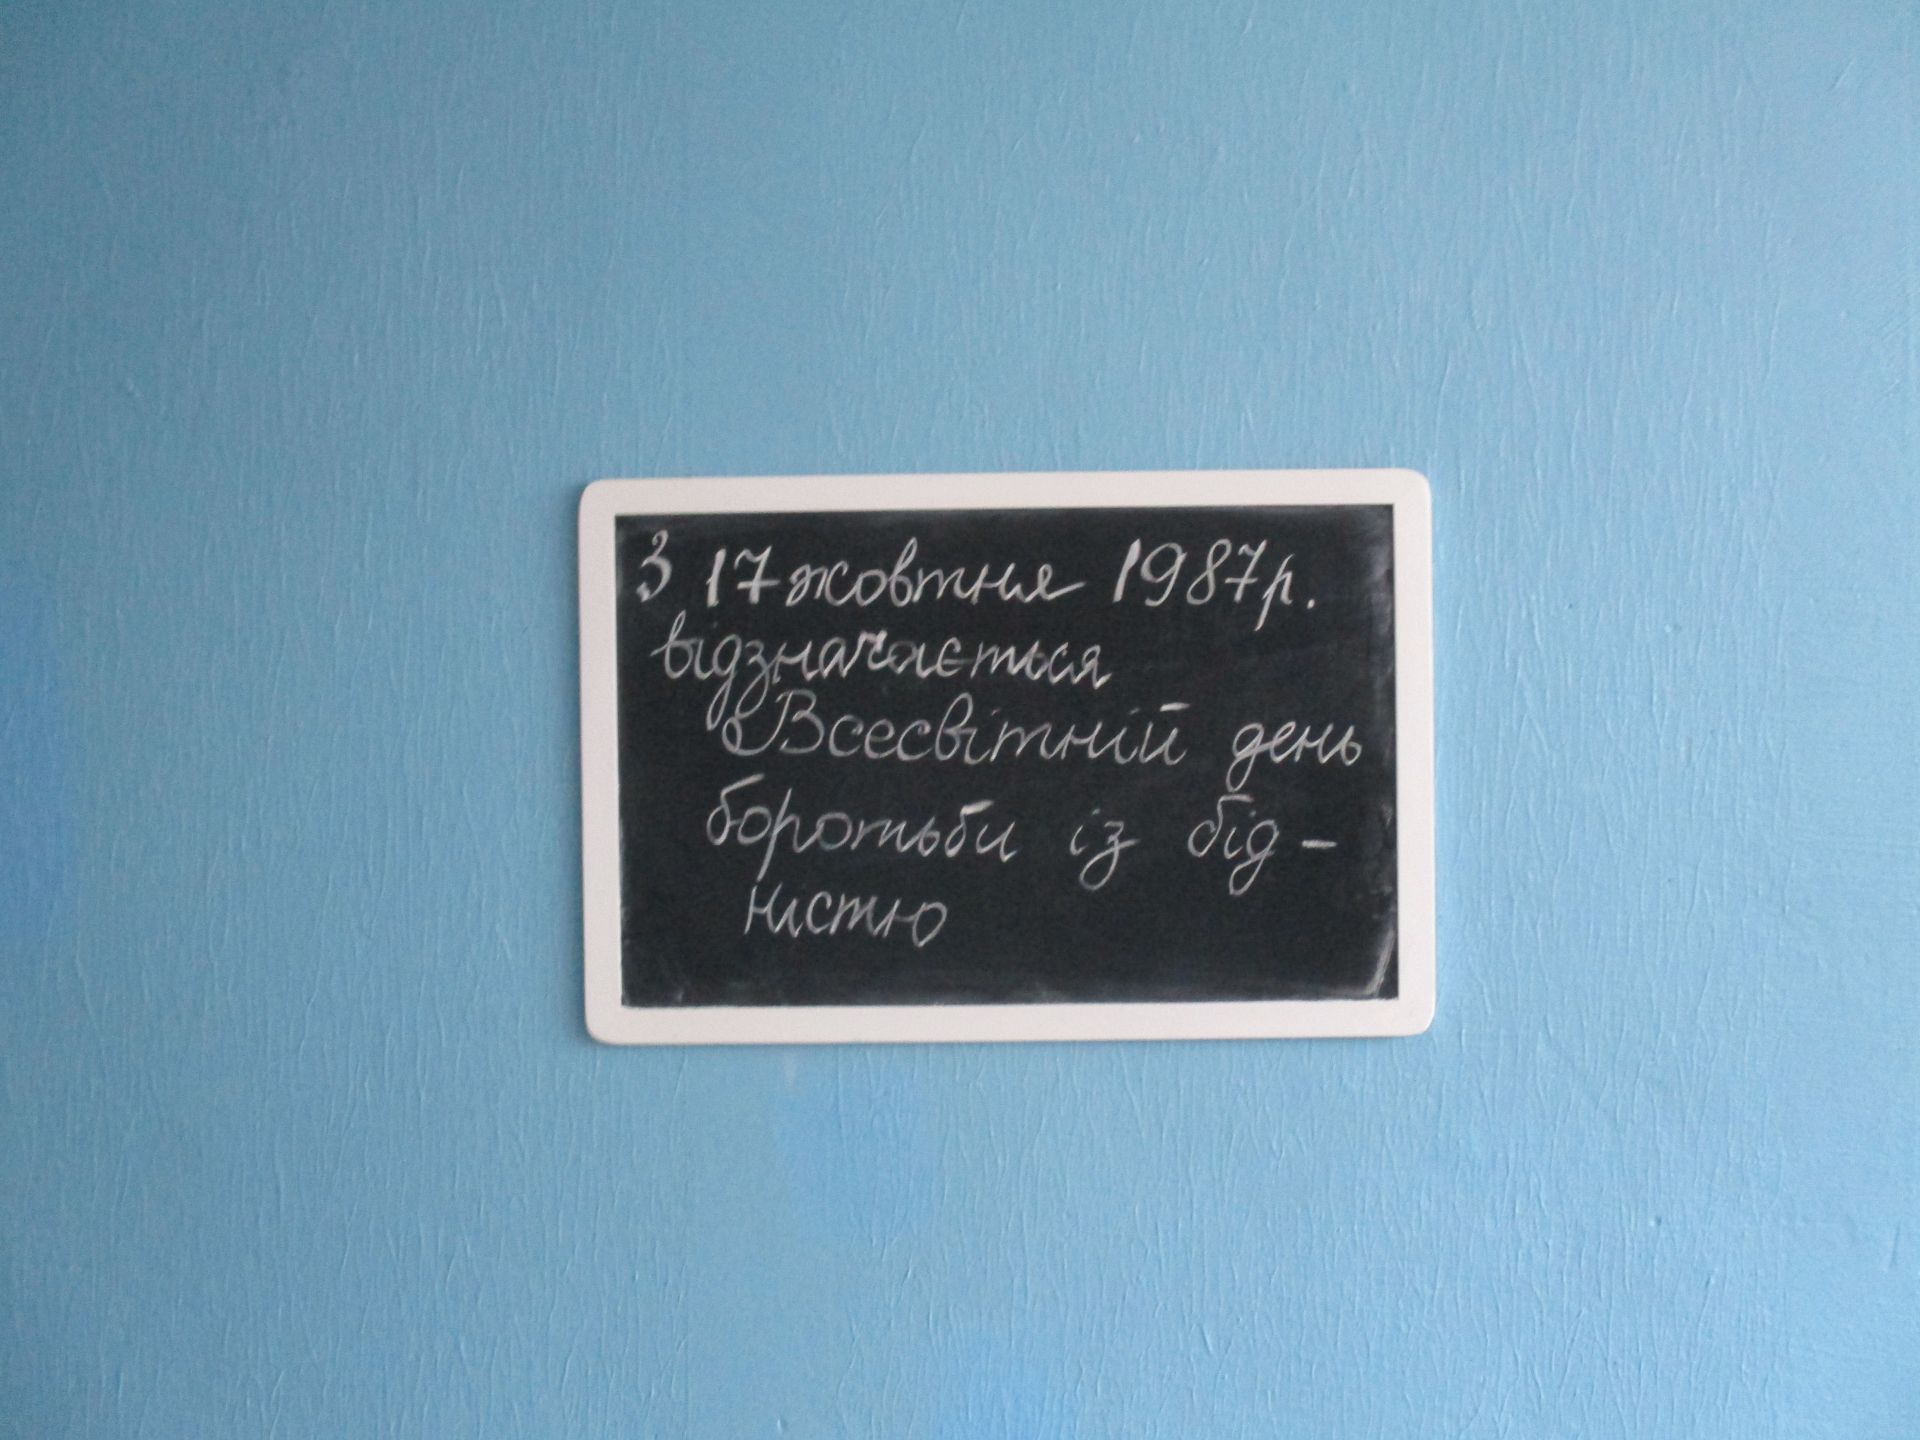 З 17 жовтня 1987р.
відзначається
Всесвітній день
боротьби із бід-
ністю